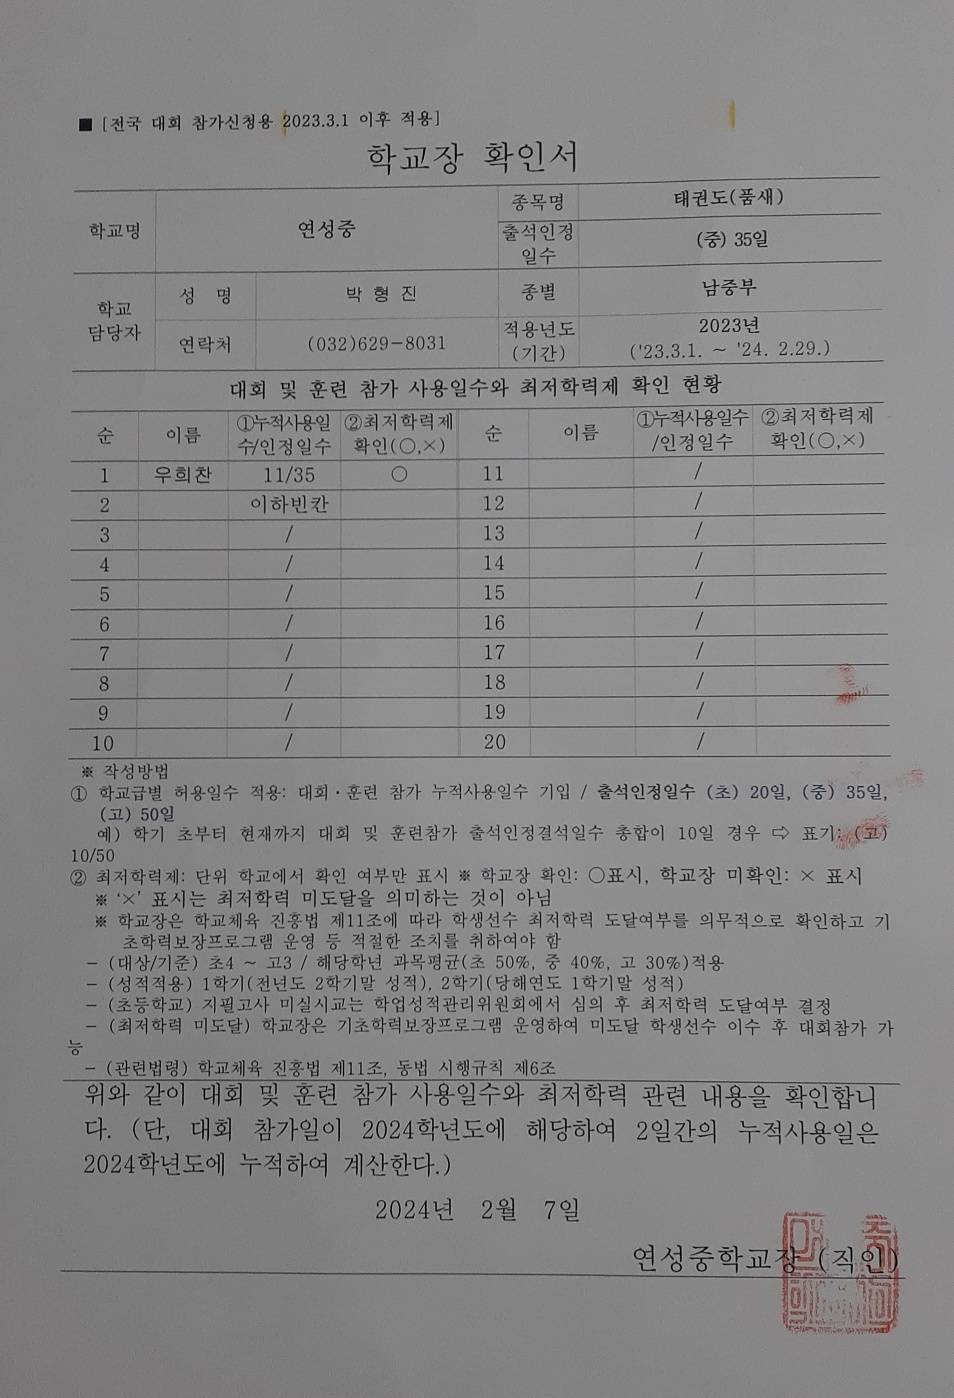 ■ [전국 대회 참가신청용 2023.3.1 이후 적용]
학교장 확인서
학교명 연성중 종목명 태권도(품새)
출석인정 일수 (중) 35일
학교 담당자 성 명 박 형 진 종별 남중부
연락처 (032)629-8031 적용년도 (기간) 2023년 ('23.3.1. ~ '24. 2.29.)
대회 및 훈련 참가 사용일수와 최저학력제 확인 현황
순 이름 ①누적사용일수/인정일수 ②최저학력제 확인(○,×) 순 이름 ①누적사용일수/인정일수 ②최저학력제 확인(○,×)
1 우희찬 11/35 ○ 11 /
2 이하빈칸 12 /
3 / 13 /
4 / 14 /
5 / 15 /
6 / 16 /
7 / 17 /
8 / 18 /
9 / 19 /
10 / 20 /
※ 작성방법
① 학교급별 허용일수 적용: 대회·훈련 참가 누적사용일수 기입 / 출석인정일수 (초) 20일, (중) 35일,
(고) 50일
예) 학기 초부터 현재까지 대회 및 훈련참가 출석인정결석일수 총합이 10일 경우 ⇨ 표기: (고)
10/50
② 최저학력제: 단위 학교에서 확인 여부만 표시 ※ 학교장 확인: ○표시, 학교장 미확인: × 표시
※ '×' 표시는 최저학력 미도달을 의미하는 것이 아님
※ 학교장은 학교체육 진흥법 제11조에 따라 학생선수 최저학력 도달여부를 의무적으로 확인하고 기
초학력보장프로그램 운영 등 적절한 조치를 취하여야 함
- (대상/기준) 초4 ~ 고3 / 해당학년 과목평균(초 50%, 중 40%, 고 30%)적용
- (성적적용) 1학기(전년도 2학기말 성적), 2학기(당해연도 1학기말 성적)
- (초등학교) 지필고사 미실시교는 학업성적관리위원회에서 심의 후 최저학력 도달여부 결정
- (최저학력 미도달) 학교장은 기초학력보장프로그램 운영하여 미도달 학생선수 이수 후 대회참가 가
능
- (관련법령) 학교체육 진흥법 제11조, 동법 시행규칙 제6조
위와 같이 대회 및 훈련 참가 사용일수와 최저학력 관련 내용을 확인합니
다. (단, 대회 참가일이 2024학년도에 해당하여 2일간의 누적사용일은
2024학년도에 누적하여 계산한다.)
2024년 2월 7일
연성중학교장 (직인)